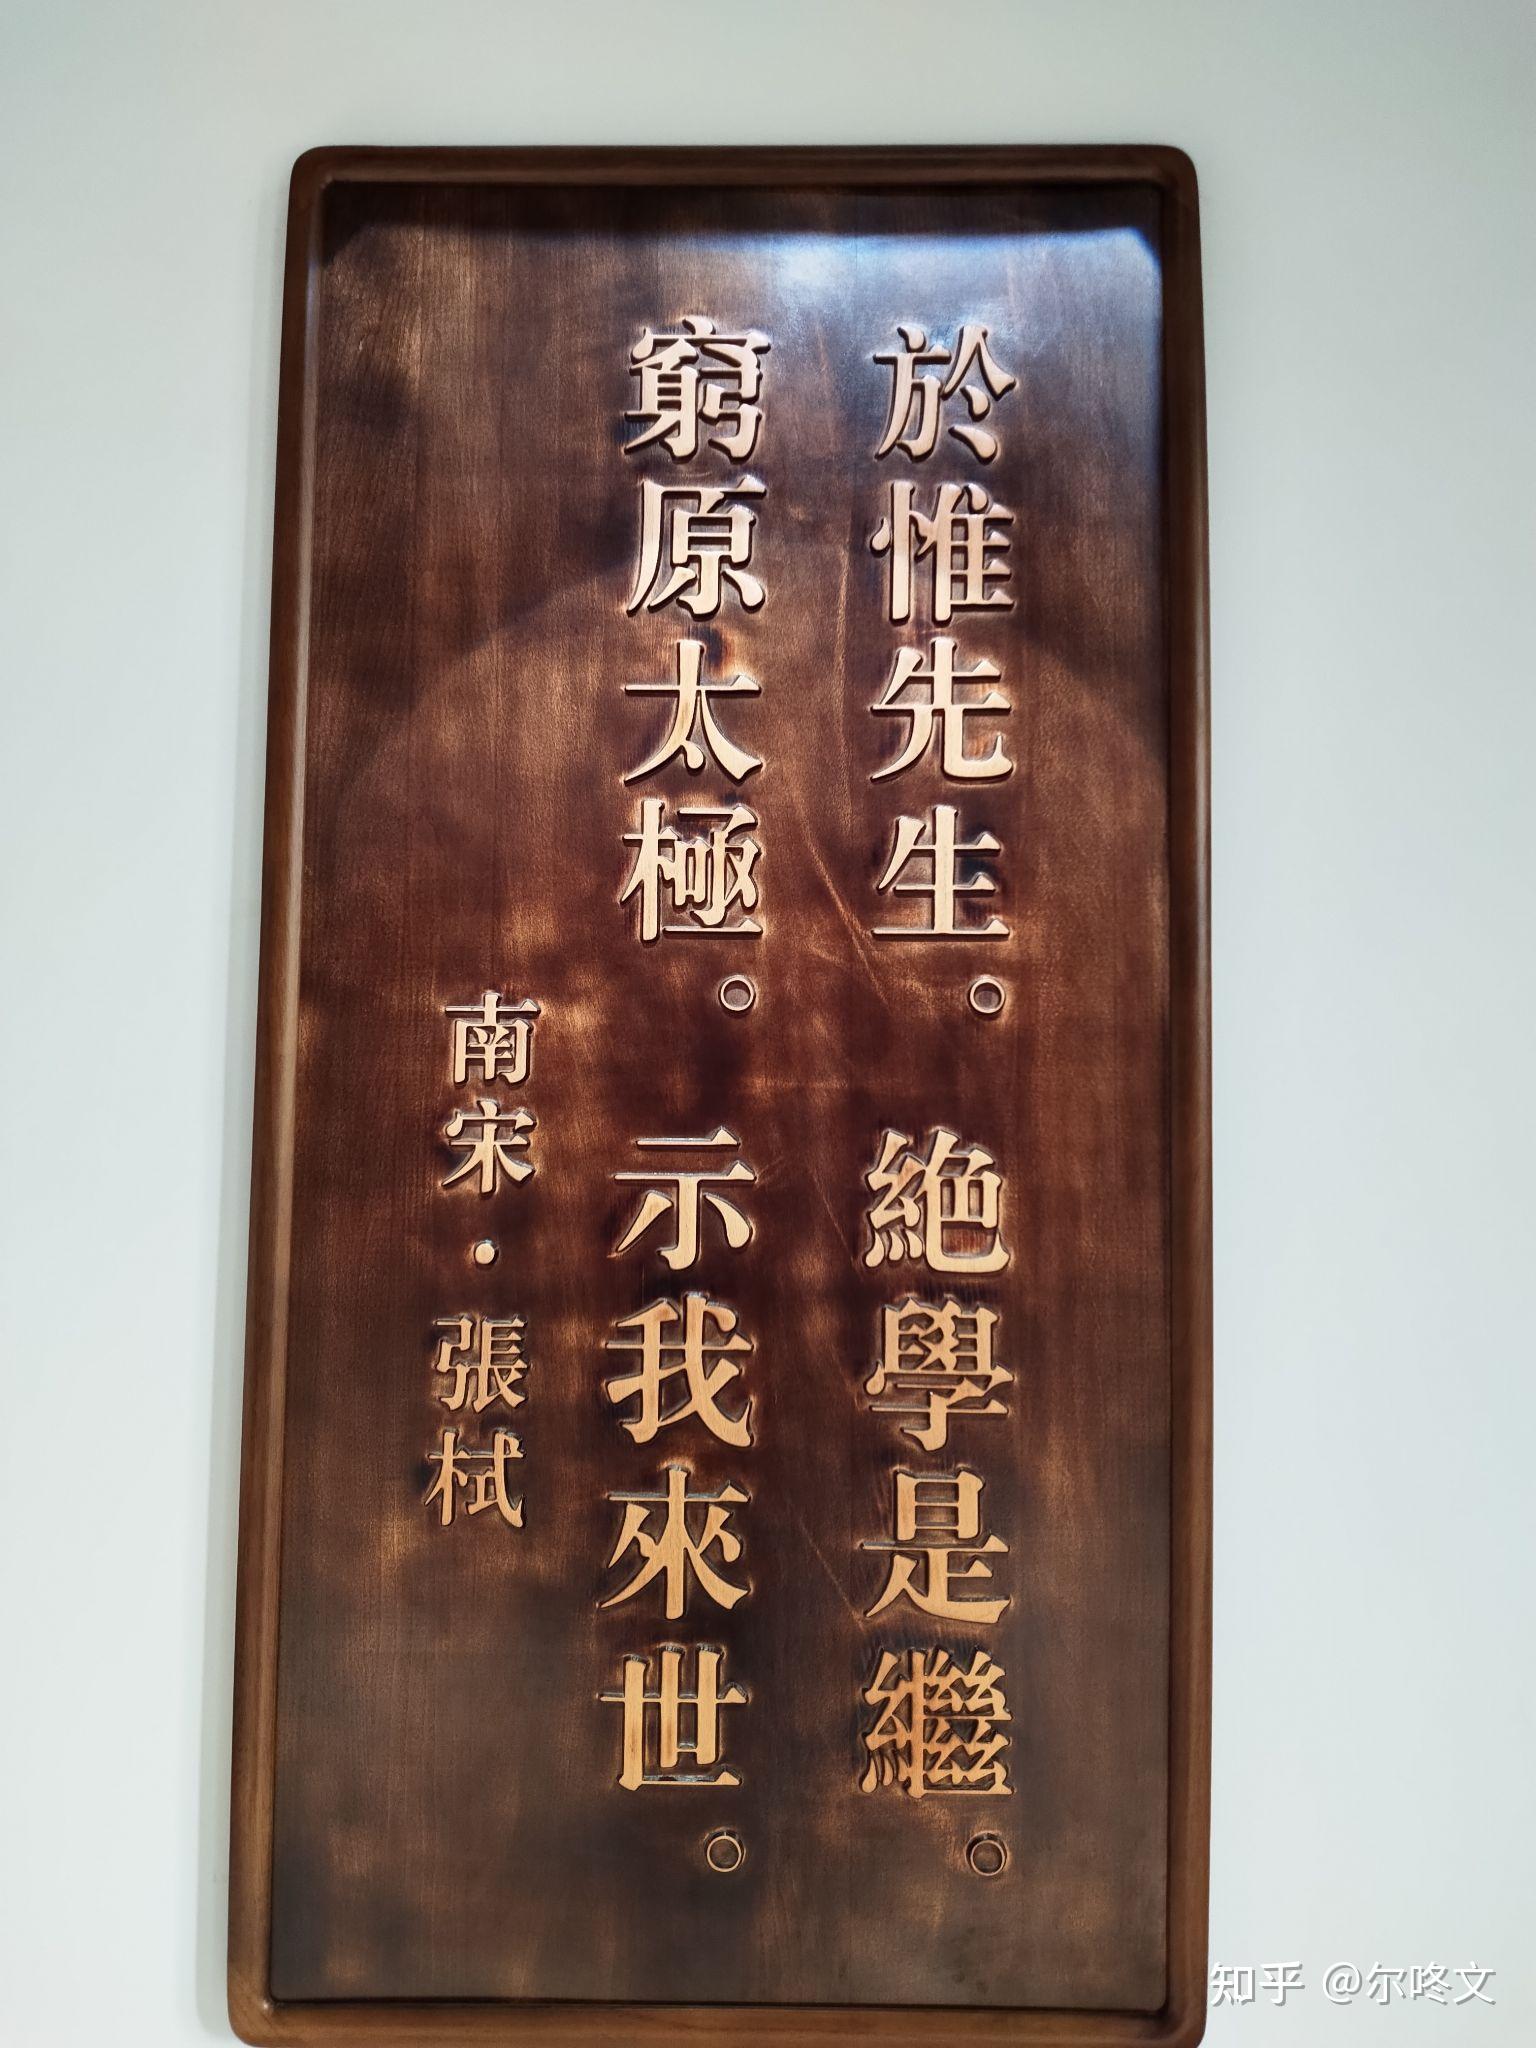 於惟先生。 絶學是繼。
窮原太極。 示我來世。
南宋·張栻
知乎 @尔咚文